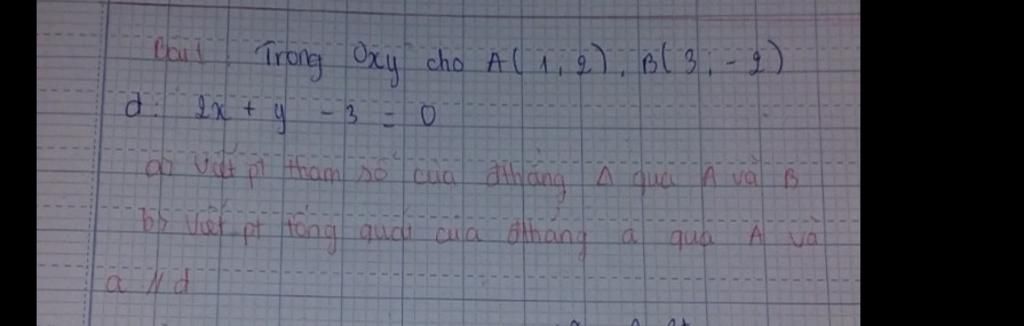 Bài 1 Trong Oxy cho A(1, 2), B(3, -2)
d: 2x + y - 3 = 0
a) Viết pt tham số của đthẳng Δ qua A và B
b) Viết pt tổng quát của đthẳng a qua A và
a // d